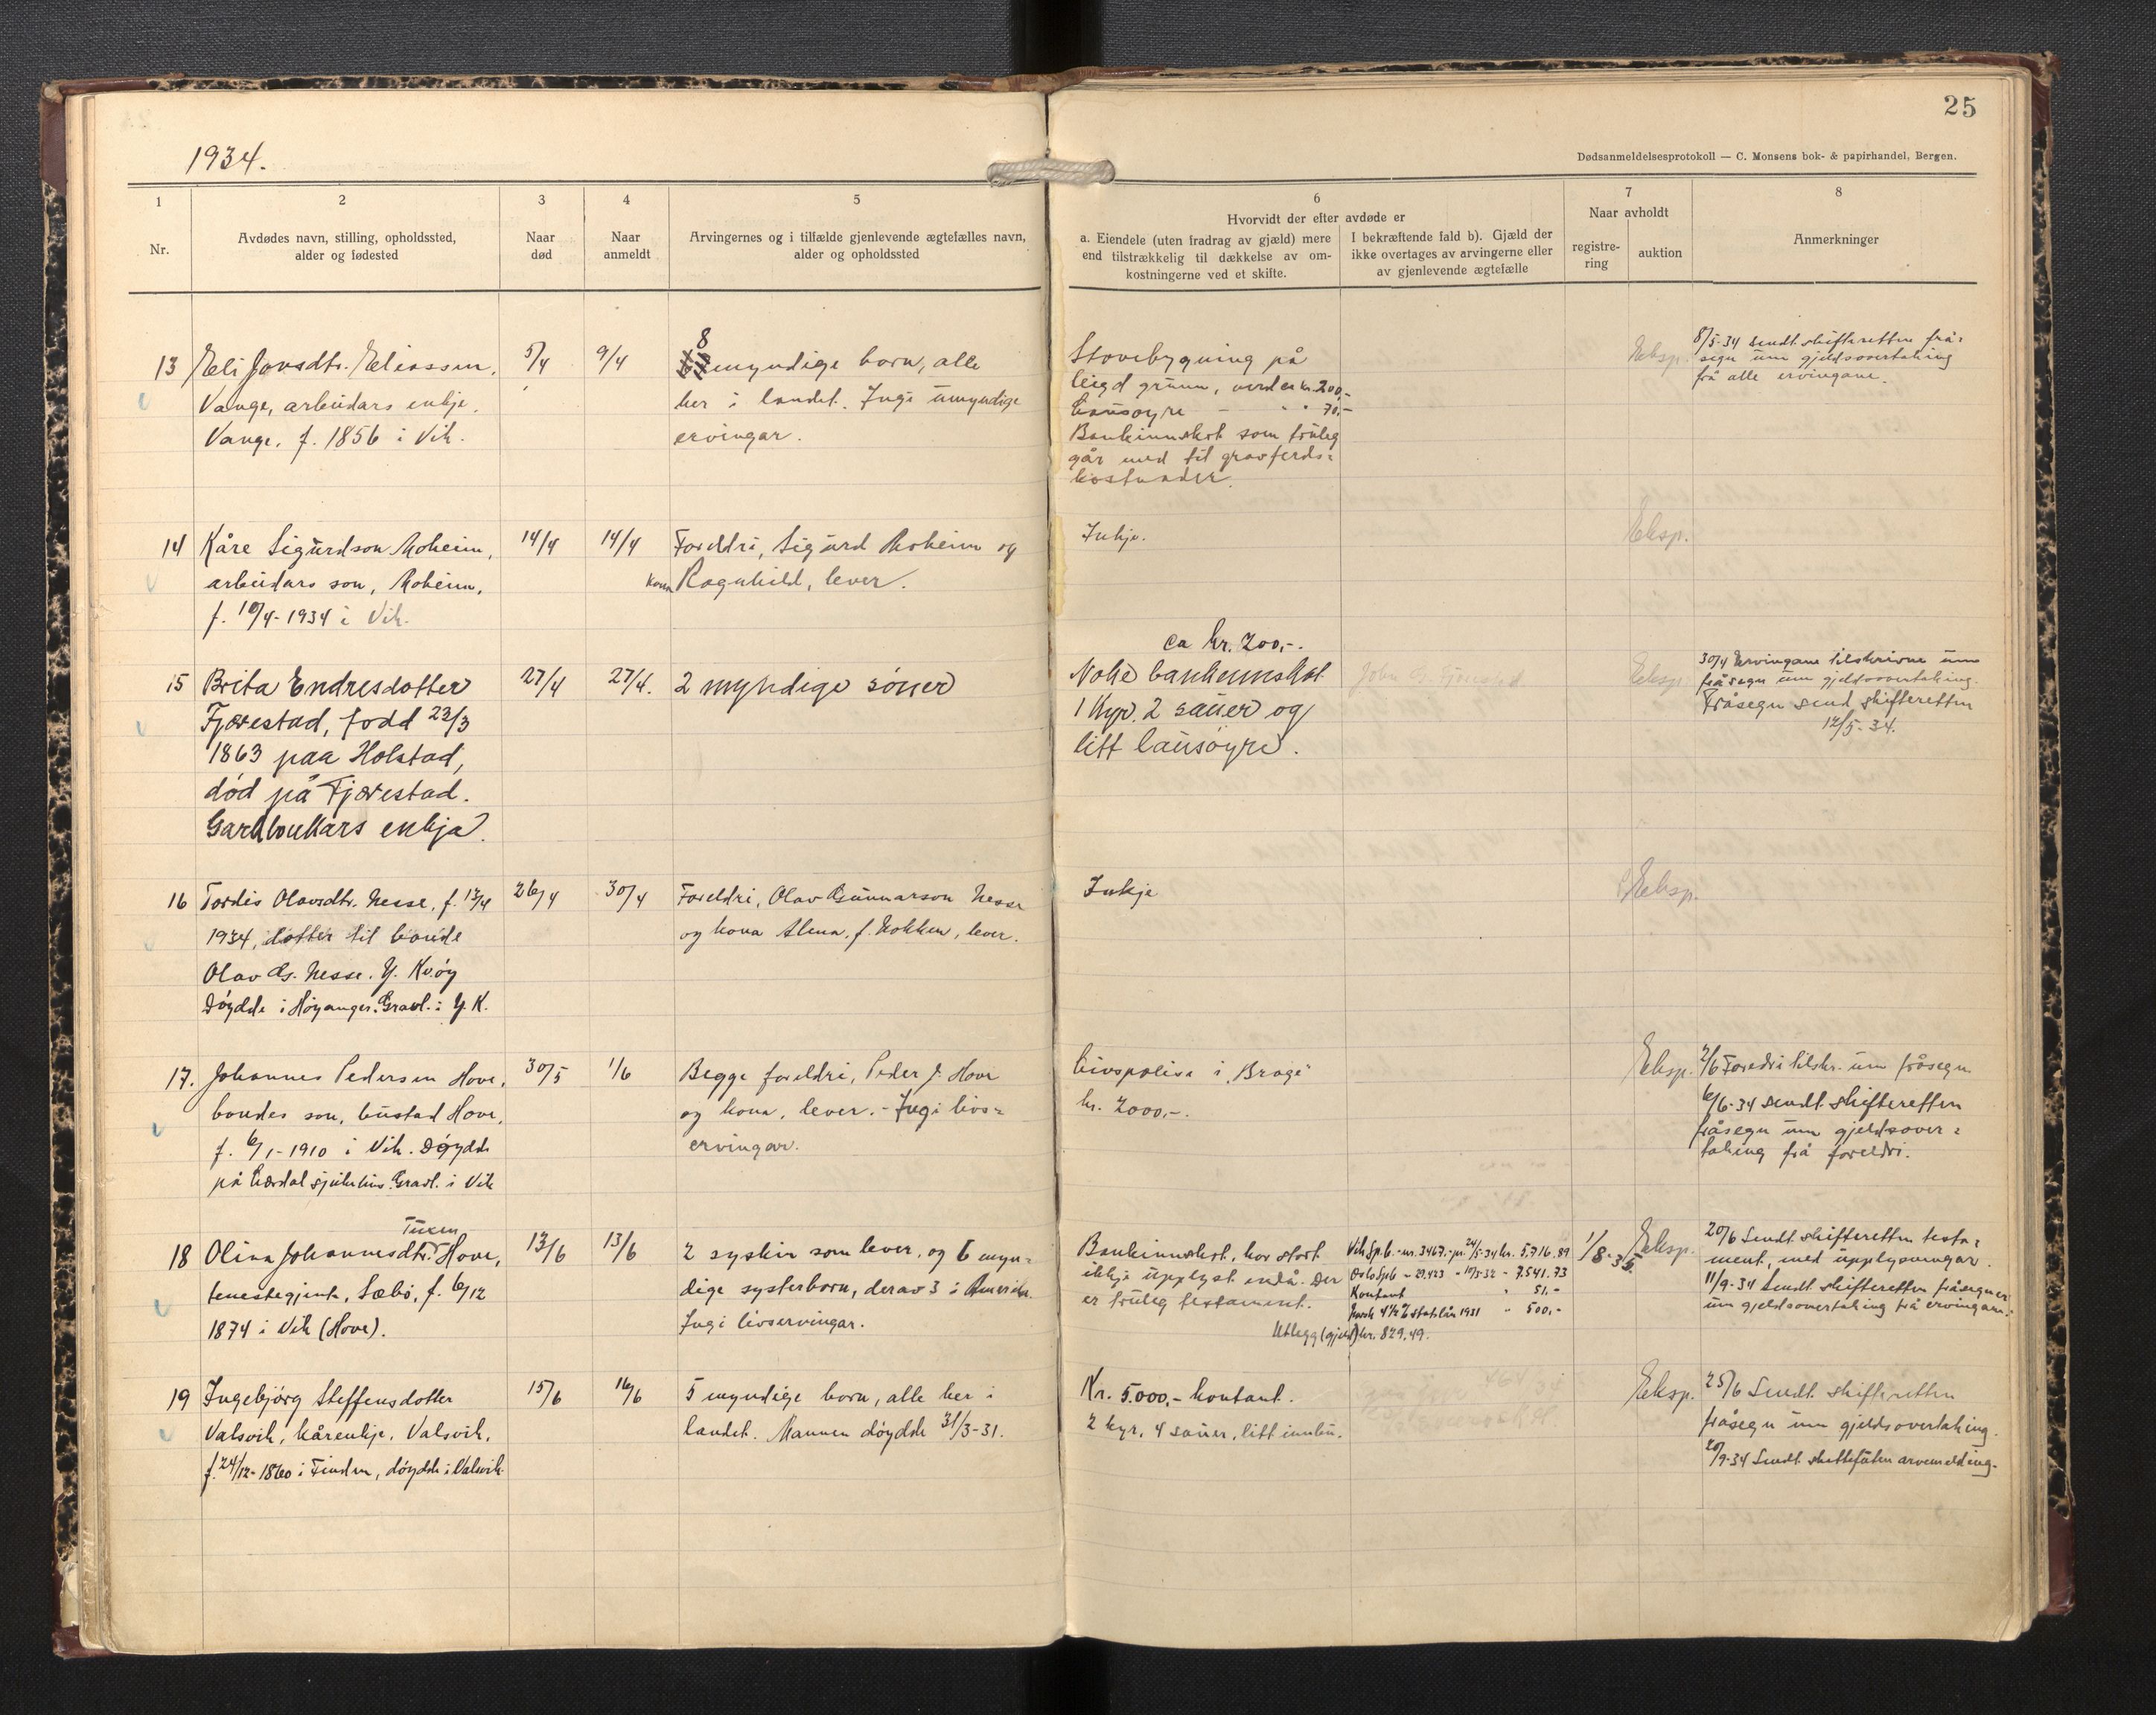 25
1934.
Dødsanmeldelsesprotokoll — C. Monsens bok- & papirhandel, Bergen.
1
Nr.
2
Avdødes navn, stilling, opholdssted,
alder og fødested
3
Naar
død
4
Naar
anmeldt
5
Arvingernes og i tilfælde gjenlevende ægtefælles navn,
alder og opholdssted
6
Hvorvidt der efter avdøde er
a. Eiendele (uten fradrag av gjæld) mere
end tilstrækkelig til dækkelse av om-
kostningerne ved et skifte.
I bekræftende fald b). Gjæld der
ikke overtages av arvingerne eller
av gjenlevende ægtefælle
7
Naar avholdt
registre-
ring
auktion
8
Anmerkninger
13
Eli Jonsdtr. Eliassen,
Vange, arbeidars enkje,
Vange, f. 1856 i Vik.
5/4
9/4
8
myndige born, alle
her i landet. Ingi umyndige
ervingar.
Stovebygning på
leigd grunn, verd er kr. 200,-
Lausøyre - " " 70,-
Bankinnskot som truleg
går med til gravferds=
kostnader.
Eksp.
8/5-34 sendt skifteretten frå=
segn um gjeldsovertaking
frå alle ervingane.
14
Kåre Sigurdson Moheim,
arbeidars son, Moheim,
f. 10/4-1934 i Vik.
14/4
14/4
Foreldri, Sigurd Moheim og
kona Ragnhild, lever.
Inkje.
Eksp.
15
Brita Endresdotter
Fjærestad, fodd 23/3
1863 paa Holstad,
død på Fjærestad.
Gardbrukars enkja.
27/4
27/4.
2 myndige sóner
ca kr. 200,-.
Noke bankinnskot
1 kyr, 2 sauer og
litt lausøyre.
Eksp.
30/4 Ervingane tilskrivne um
fråsegn um gjeldsovertaking.
Fråsegn send skifteretten
12/5-34.
16
Tordis Olavsdtr. Nesse, f. 13/4
1934, dotter til bonde
Olav G. Nesse. Y. Kvøy
Døydde i Høyanger. Gravl. i Y. K.
26/4
30/4
Foreldri, Olav Gunnarson Nesse
og kona Alma, f. Nokken, lever.
Inkje
Eksp.
17.
Johannes Pedersen Hove,
bondes son, bustad Hove,
f. 6/1-1910 i Vik. Døydde
på Lærdal sjukehus. Gravl. i Vik
30/5
1/6
Begge foreldri, Peder J. Hove
og kona, lever. - Ingi livs=
ervingar.
Livspolise i "Brage"
kr. 2000,-.
Eksp.
2/6 Foreldri tilskr. um fråsegn
6/6-34 sendt skifteretten
fråsegn um gjeldsover=
taking frå foreldri.
18
Tuxen
Olina Johannesdtr. Hove,
tenestegjente, Sæbø, f. 6/12
1874 i Vik (Hove).
13/6
13/6
2 syskin som lever, og 6 myn=
dige systerborn, derav 3 i Amerika.
Ingi livservingar.
Bankinnskot, kor stort
ikkje upplyst endå. Der
er truleg testament.
Vik Sp.b. - nr. 3467.- pr. 24/5-34 kr. 5.716.89
Oslo Spb - 29.423 - 10/5-32 - 7.541.73
Kontant " 51.-
Norsk 4½% Statslån 1931 " 500,-
Utlegg (gjeld) kr. 829.49.
1/8-35
Eksp.
20/6 Sendt skifteretten testa=
ment, med upplysningar.
11/9-34 Sendt skifteretten fråsegner
um gjeldsovertaking frå ervingane.
19
Ingebjørg Steffensdotter
Valsvik, kårenkje, Valsvik,
f. 24/12-1860 i Finden, døydde i Valsvik.
15/6
16/6
5 myndige born, alle her i
landet. Mannen døydde 31/3-31.
Kr. 5.000,- kontant.
2 kyr, 4 sauer, litt innbu.
Eksp.
25/6 Sendt skifteretten
fråsegn um gjeldsovertaking.
20/9-34 Sendt skattefuten arvemelding.